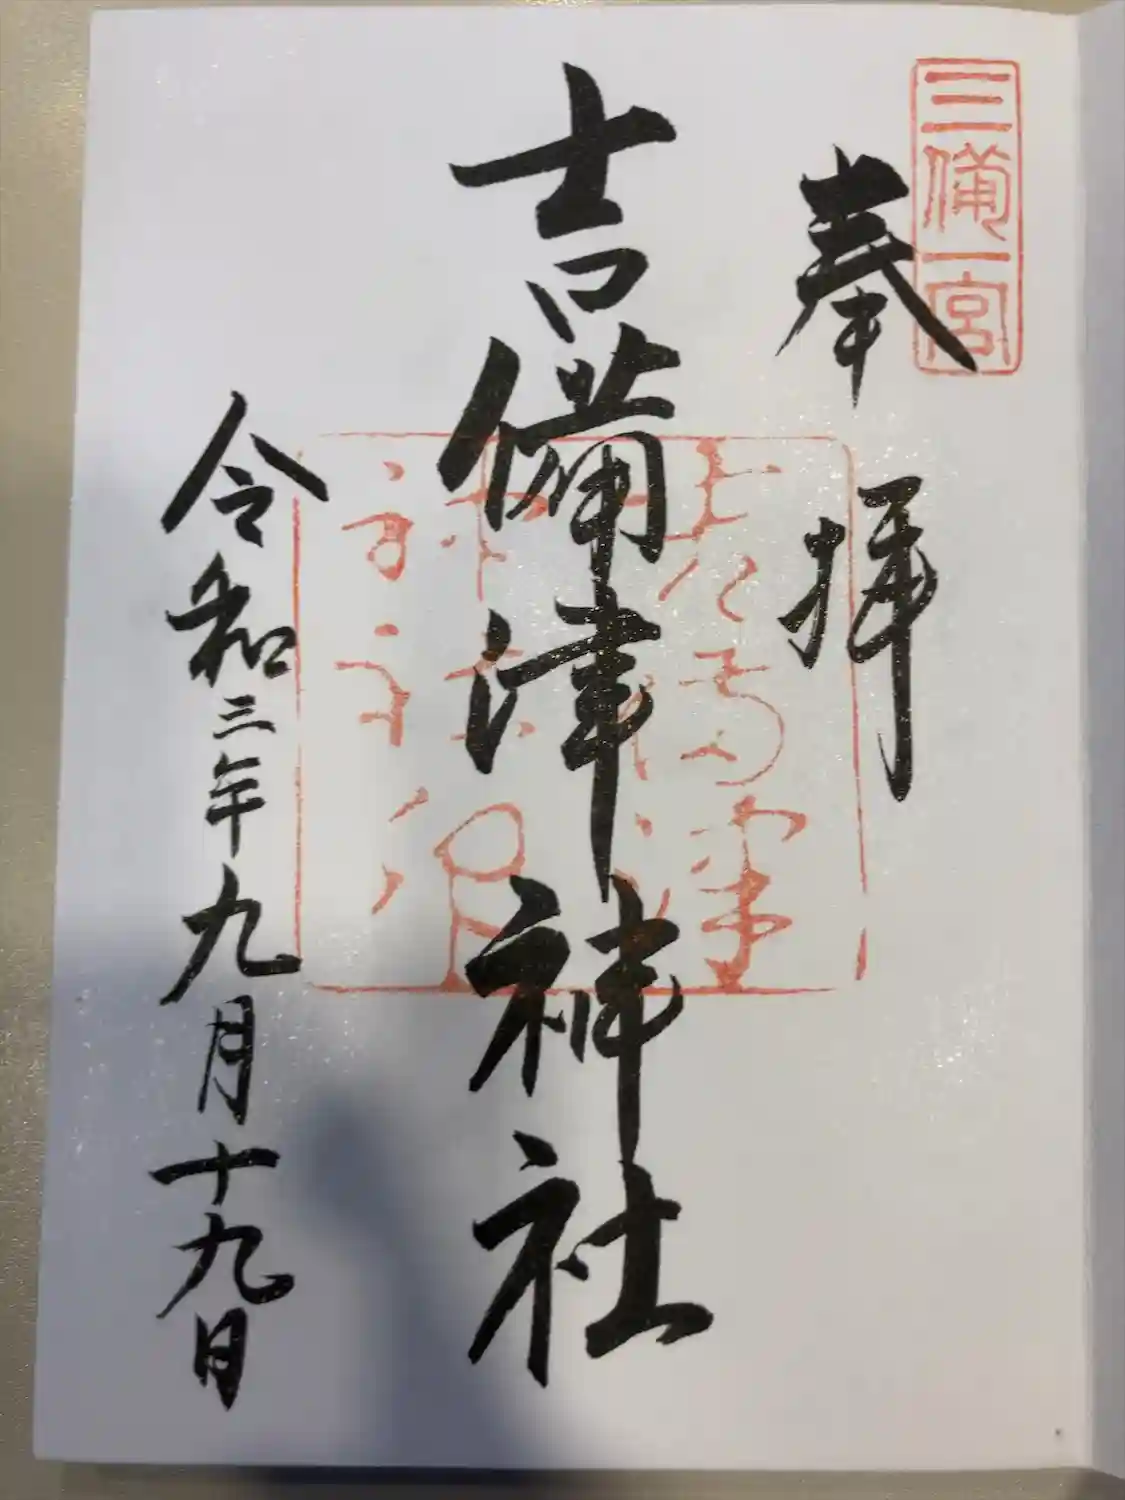 三備一宮
奉拝
吉備津神社
令和三年九月十九日